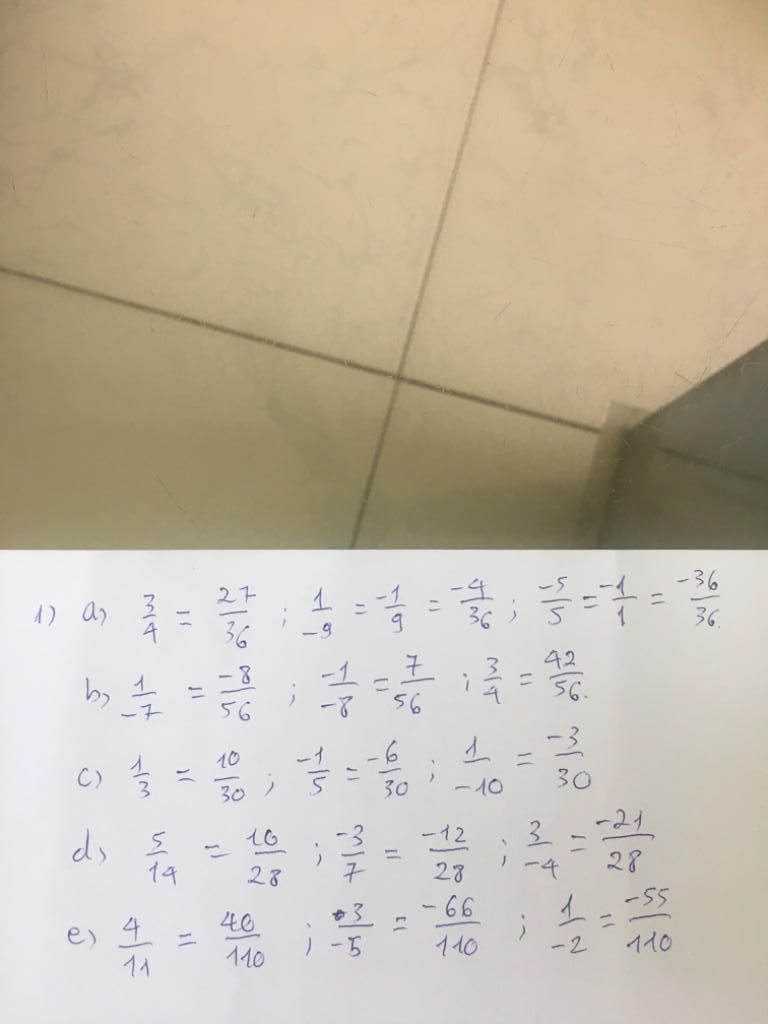 1) a) 3/4 = 27/36 ; 1/-9 = -1/9 = -4/36 ; -5/5 = -1/1 = -36/36
b) 1/-7 = -8/56 ; -1/-8 = 7/56 ; 3/4 = 42/56.
c) 1/3 = 10/30 ; -1/5 = -6/30 ; 1/-10 = -3/30
d) 5/14 = 10/28 ; -3/7 = -12/28 ; 3/-4 = -21/28
e) 4/11 = 40/110 ; 3/-5 = -66/110 ; 1/-2 = -55/110